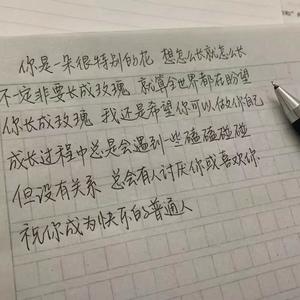 你是一朵很特别的花 想怎么长就怎么长
不一定非要长成玫瑰 就算全世界都在盼望
你长成玫瑰 我还是希望你可以做你自己
成长过程中总是会遇到一些磕磕碰碰
但没有关系 总会有人讨厌你或喜欢你
祝你成为快乐的普通人